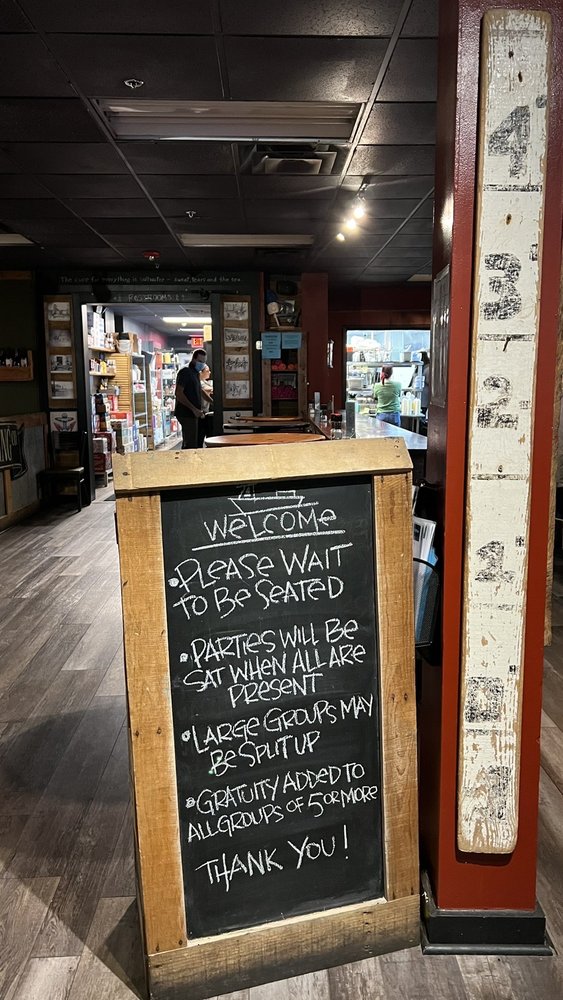 The cure for everything is saltwater - sweat, tears and the sea.
RESTROOMS
EXIT
WELCOME
• PLEASE WAIT
TO BE SEATED
• PARTIES WILL BE
SAT WHEN ALL ARE
PRESENT
• LARGE GROUPS MAY
BE SPLIT UP
• GRATUITY ADDED TO
ALL GROUPS OF 5 OR MORE
THANK YOU!
4
3
2
1
0
1